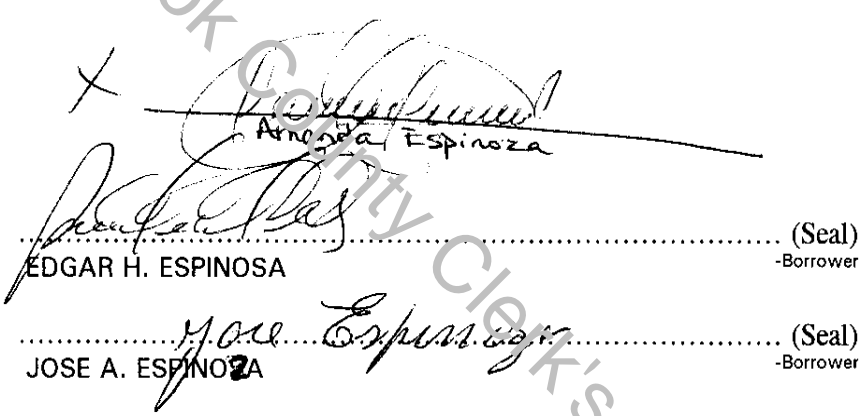 X
Amanda Espinoza
(Seal)
EDGAR H. ESPINOSA
-Borrower
Jose Espinoza (Seal)
JOSE A. ESPINOZA
-Borrower
ok County Clerk's